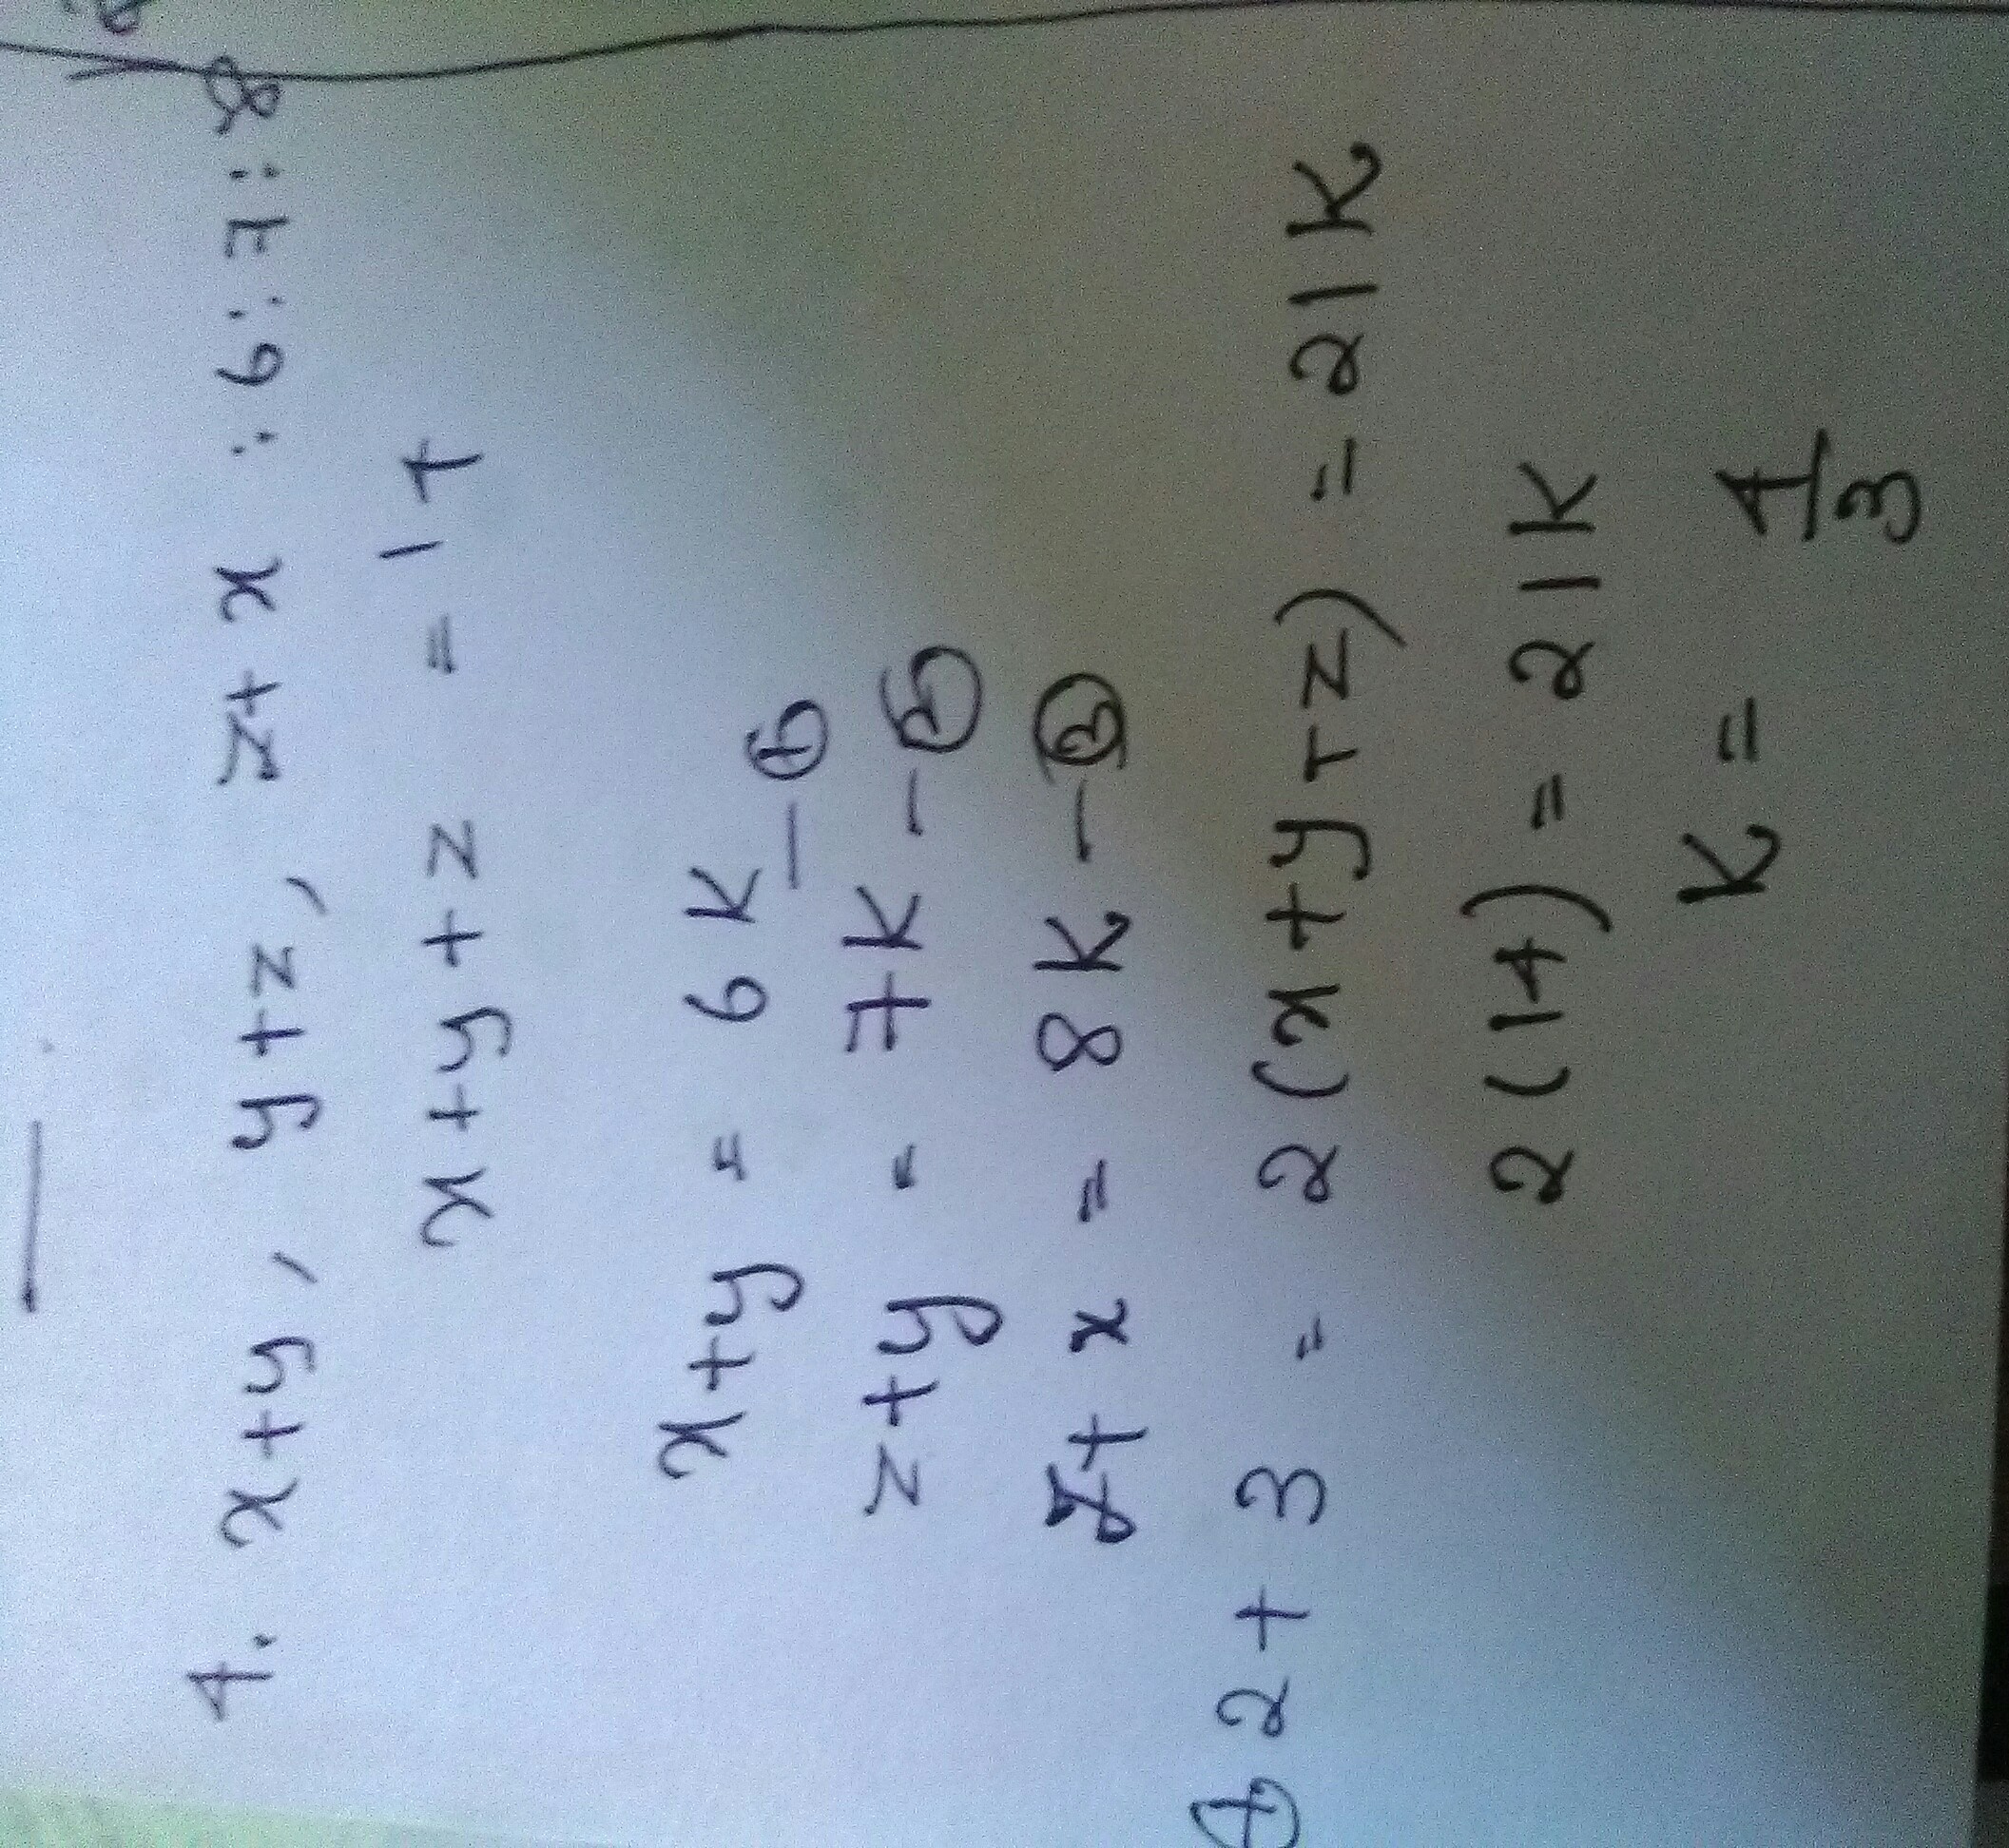 4. x+y, y+z, z+x : 6:7:8
x+y+z = 14
x+y = 6K —①
z+y = 7K —②
z+x = 8K —③
① 2+3 = 2(x+y+z) = 21K
2(14) = 21K
K = 4/3